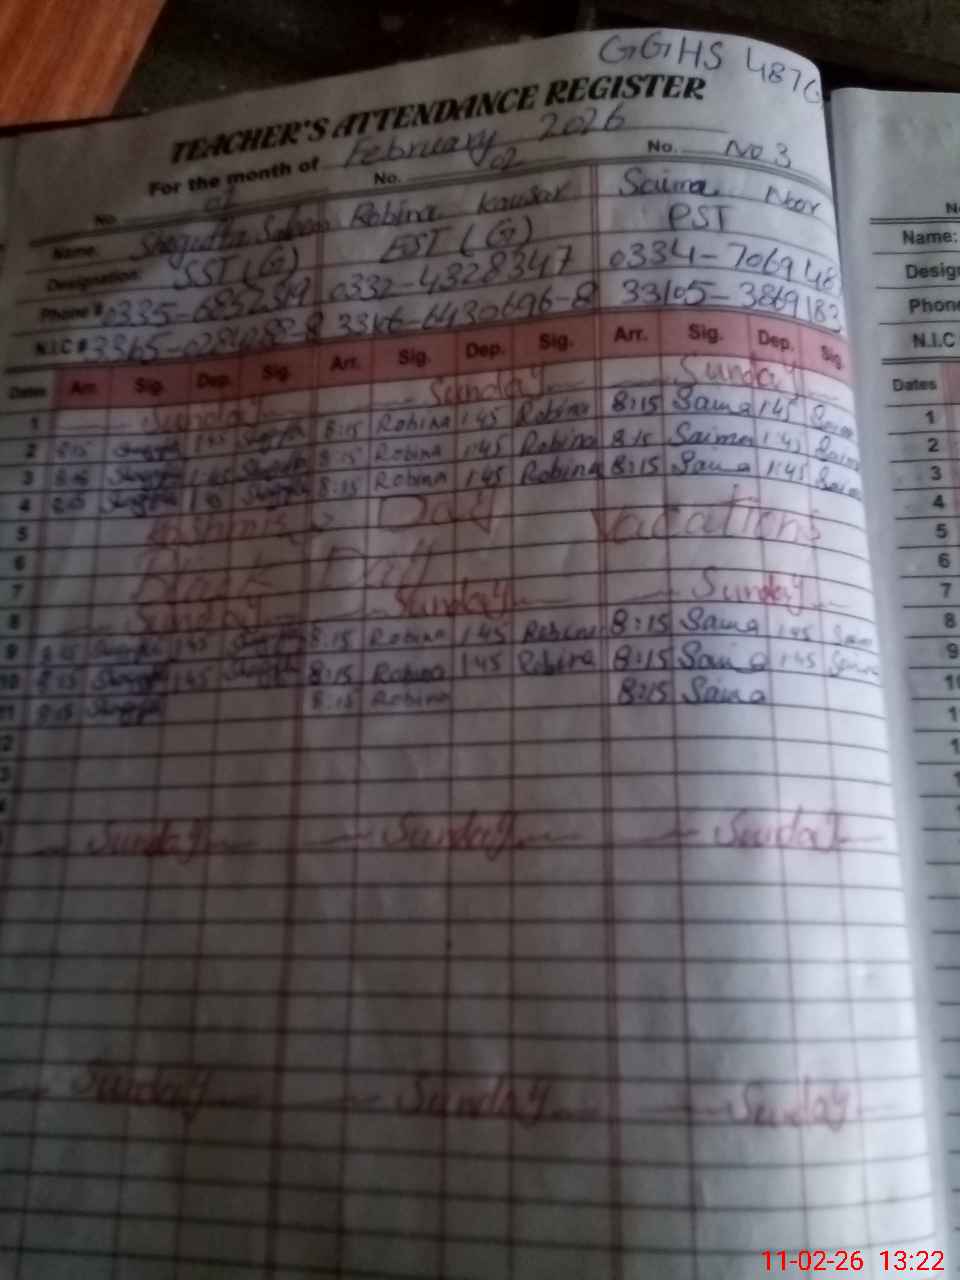 GGHS 487G
TEACHER'S ATTENDANCE REGISTER
For the month of February 2026
No. 01 No. 02 No. No 3
Name. Robina Kausar Saima Noor
Designation: SST (G) EST (G) PST
Phone # 0335-6852519 0332-4328347 0334-706948
N.I.C # 33105-3869183
Dates Arr. Sig. Dep. Sig. Arr. Sig. Dep. Sig. Arr. Sig. Dep. Sig.
1 Sunday Sunday Sunday
2 8:15 1:45 8:15 Robina 1:45 Robina 8:15 Saima 1:45 Saima
3 8:15 1:45 8:15 Robina 1:45 Robina 8:15 Saima 1:45 Saima
4 8:15 1:45 8:15 Robina 1:45 Robina 8:15 Saima 1:45 Saima
5 Kashmir Day Vacations
6 Day
7
8 Sunday Sunday Sunday
9 8:15 1:45 8:15 Robina 1:45 Robina 8:15 Saima 1:45 Saima
10 8:15 1:45 8:15 Robina 1:45 Robina 8:15 Saima 1:45 Saima
11 8:15 8:15 Robina 8:15 Saima
2
3
4
Sunday Sunday Sunday
Sunday Sunday Sunday
Name:
Desig
Phone
N.I.C
Dates
1
2
3
4
5
6
7
8
9
10
1
11-02-26 13:22